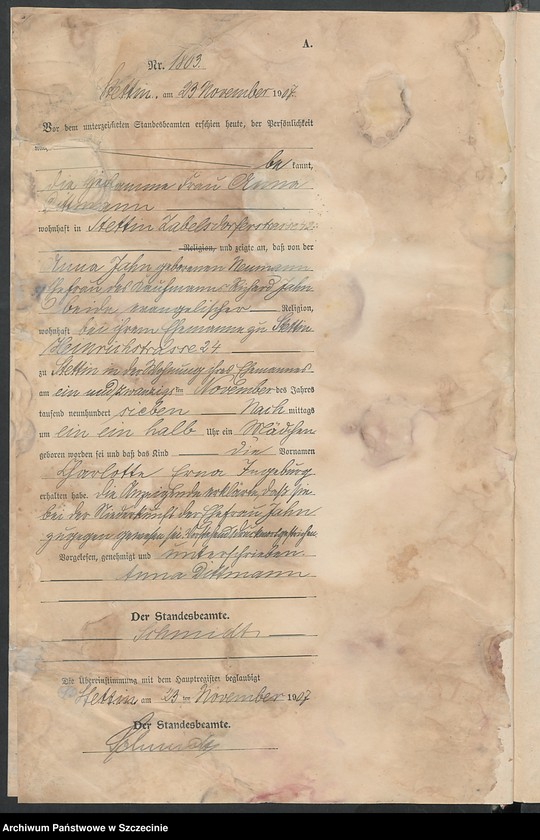 A.
Nr. 1803.
Stettin, am 23 November 1907
Vor dem unterzeichneten Standesbeamten erschien heute, der Persönlichkeit
nach
be kannt,
die Hebamme Frau Anna
Dittmann
wohnhaft in Stettin Zabelsdorferstrasse
Religion, und zeigte an, daß von der
Anna Jahn geborenen Neumann
Ehefrau des Kaufmanns Richard Jahn
beide evangelischer Religion,
wohnhaft bei ihrem Ehemanne zu Stettin
Heinrichstrasse 24
zu Stettin in der Wohnung ihres Ehemannes
am ein und zwanzigsten November des Jahres
tausend neunhundert sieben Nach mittags
um ein ein halb Uhr ein Mädchen
geboren worden sei und daß das Kind die Vornamen
Charlotte Erna Ingeburg
erhalten habe. Die Anzeigende erklärte, dass sie
bei der Niederkunft der Ehefrau Jahn
zugegen gewesen sei. Vorstehend Druckwort gestrichen.
Vorgelesen, genehmigt und unterschrieben
Anna Dittmann
Der Standesbeamte.
Schmidt.
Die Übereinstimmung mit dem Hauptregister beglaubigt
Stettin, am 23 ten November 1907
Der Standesbeamte.
Schmidt
Archiwum Państwowe w Szczecinie